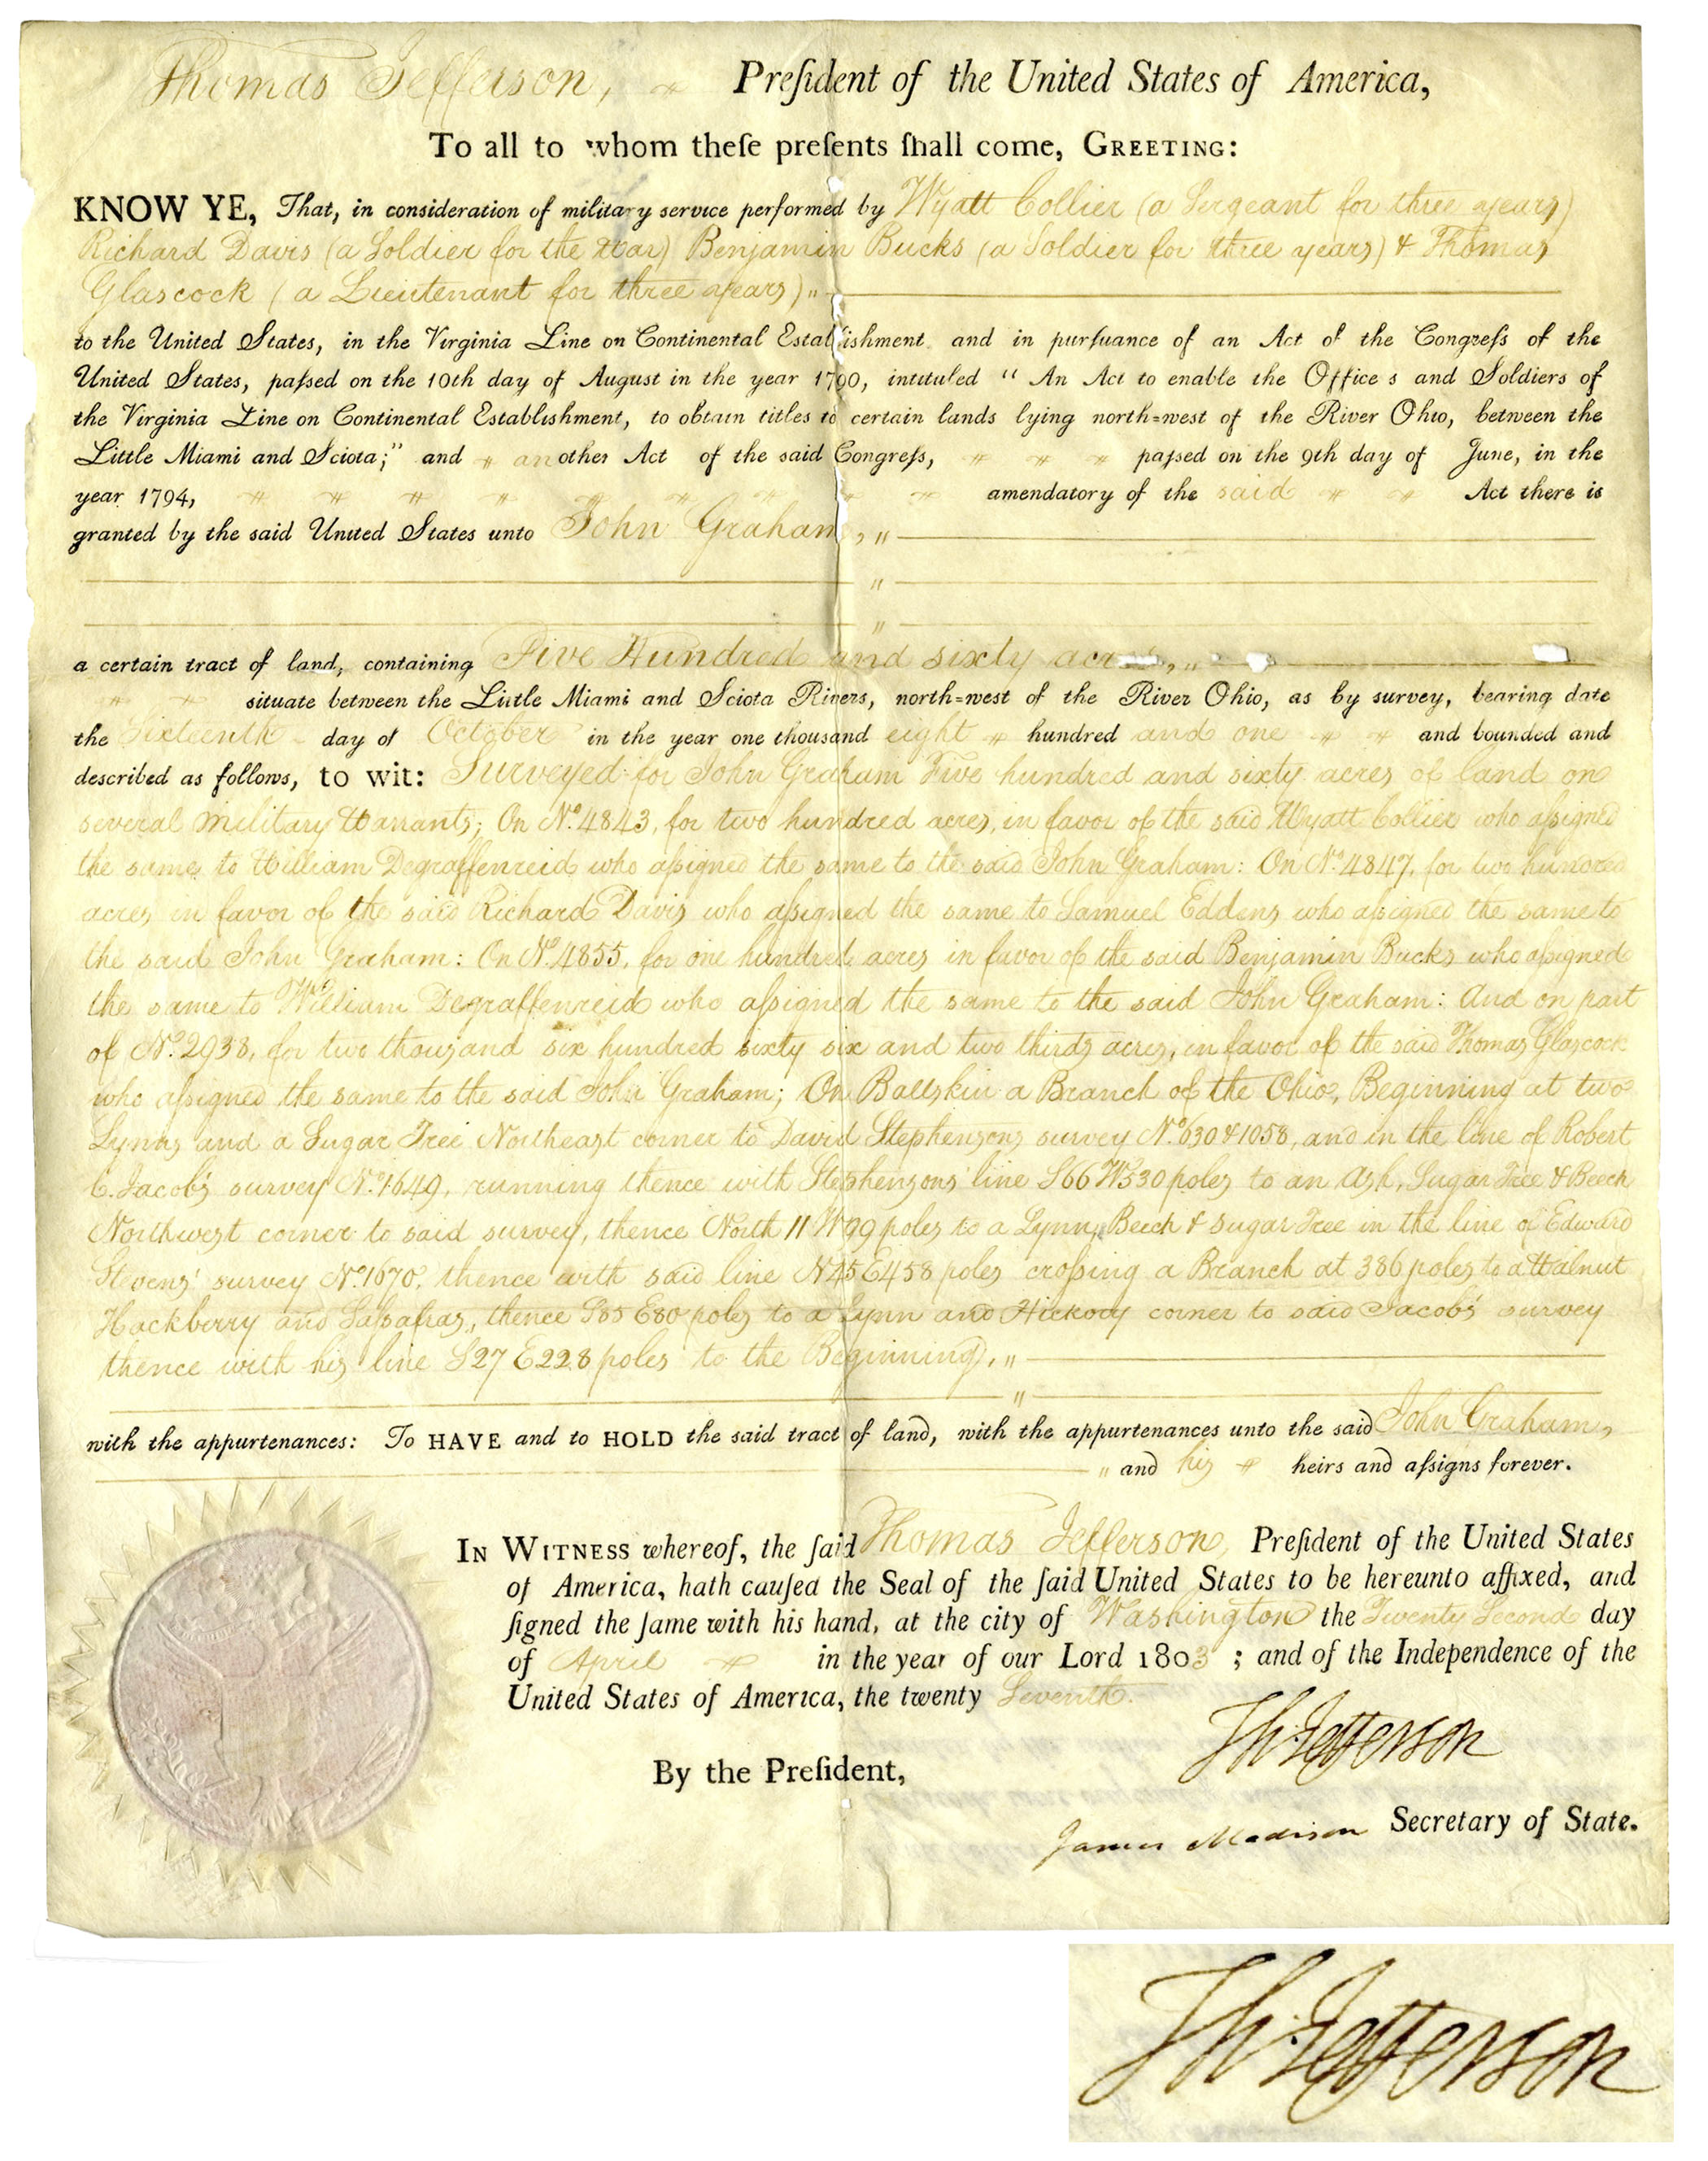 Thomas Jefferson, Preſident of the United States of America,
To all to whom theſe preſents ſhall come, GREETING:
KNOW YE, That, in consideration of military service performed by Wyatt Collier (a Sergeant for three years)
Richard Davis (a Soldier for the War) Benjamin Bucks (a Soldier for three years) & Thomas
Glascock (a Lieutenant for three years) „
to the United States, in the Virginia Line on Continental Establishment and in purſuance of an Act of the Congreſs of the
United States, paſsed on the 10th day of August in the year 1790, intituled “ An Act to enable the Office s and Soldiers of
the Virginia Line on Continental Establishment, to obtain titles to certain lands lying north=west of the River Ohio, between the
Little Miami and Sciota;” and another Act of the said Congreſs, paſsed on the 9th day of June, in the
year 1794, amendatory of the said Act there is
granted by the said United States unto John Graham, „
„
„
a certain tract of land, containing Five Hundred and sixty acres, „
situate between the Little Miami and Sciota Rivers, north=west of the River Ohio, as by survey, bearing date
the Sixteenth day of October in the year one thousand eight hundred and one and bounded and
described as follows, to wit: Surveyed for John Graham Five hundred and sixty acres of land on
several military Warrants; On No. 4843, for two hundred acres, in favor of the said Wyatt Collier who aſsigned
the same to William Degraffenreid who aſsigned the same to the said John Graham: On No. 4847, for two hundred
acres in favor of the said Richard Davis who aſsigned the same to Samuel Eddens who aſsigned the same to
the said John Graham: On No. 4855, for one hundred acres in favor of the said Benjamin Bucks who aſsigned
the same to William Degraffenreid who aſsigned the same to the said John Graham: And on part
of No. 2938, for two thousand six hundred sixty six and two thirds acres, in favor of the said Thomas Glascock
who aſsigned the same to the said John Graham; On Ballskin a Branch of the Ohio, Beginning at two
Lynns and a Sugar Tree Northeast corner to David Stephensons survey No. 630 & 1058, and in the line of Robert
C. Jacob's survey No. 1649, running thence with Stephensons' line S66 W530 poles to an Ash, Sugar Tree & Beech
Northwest corner to said survey, thence North 11 W 99 poles to a Lynn, Beech & Sugar Tree in the line of Edward
Stevens' survey No. 1670, thence with said line N45 E458 poles croſsing a Branch at 386 poles to a Walnut
Hackberry and Saſsafras, thence S85 E80 poles to a Lynn and Hickory corner to said Jacob's survey
thence with his line S27 E228 poles to the Beginning, „
„
with the appurtenances: To HAVE and to HOLD the said tract of land, with the appurtenances unto the said John Graham,
„ and his heirs and aſsigns forever.
IN WITNESS whereof, the ſaid Thomas Jefferson, Preſident of the United States
of America, hath cauſed the Seal of the ſaid United States to be hereunto affixed, and
ſigned the ſame with his hand, at the city of Washington the Twenty Second day
of April in the year of our Lord 1803 ; and of the Independence of the
United States of America, the twenty Seventh.
Th: Jefferson
By the Preſident,
James Madison Secretary of State.
Th: Jefferson